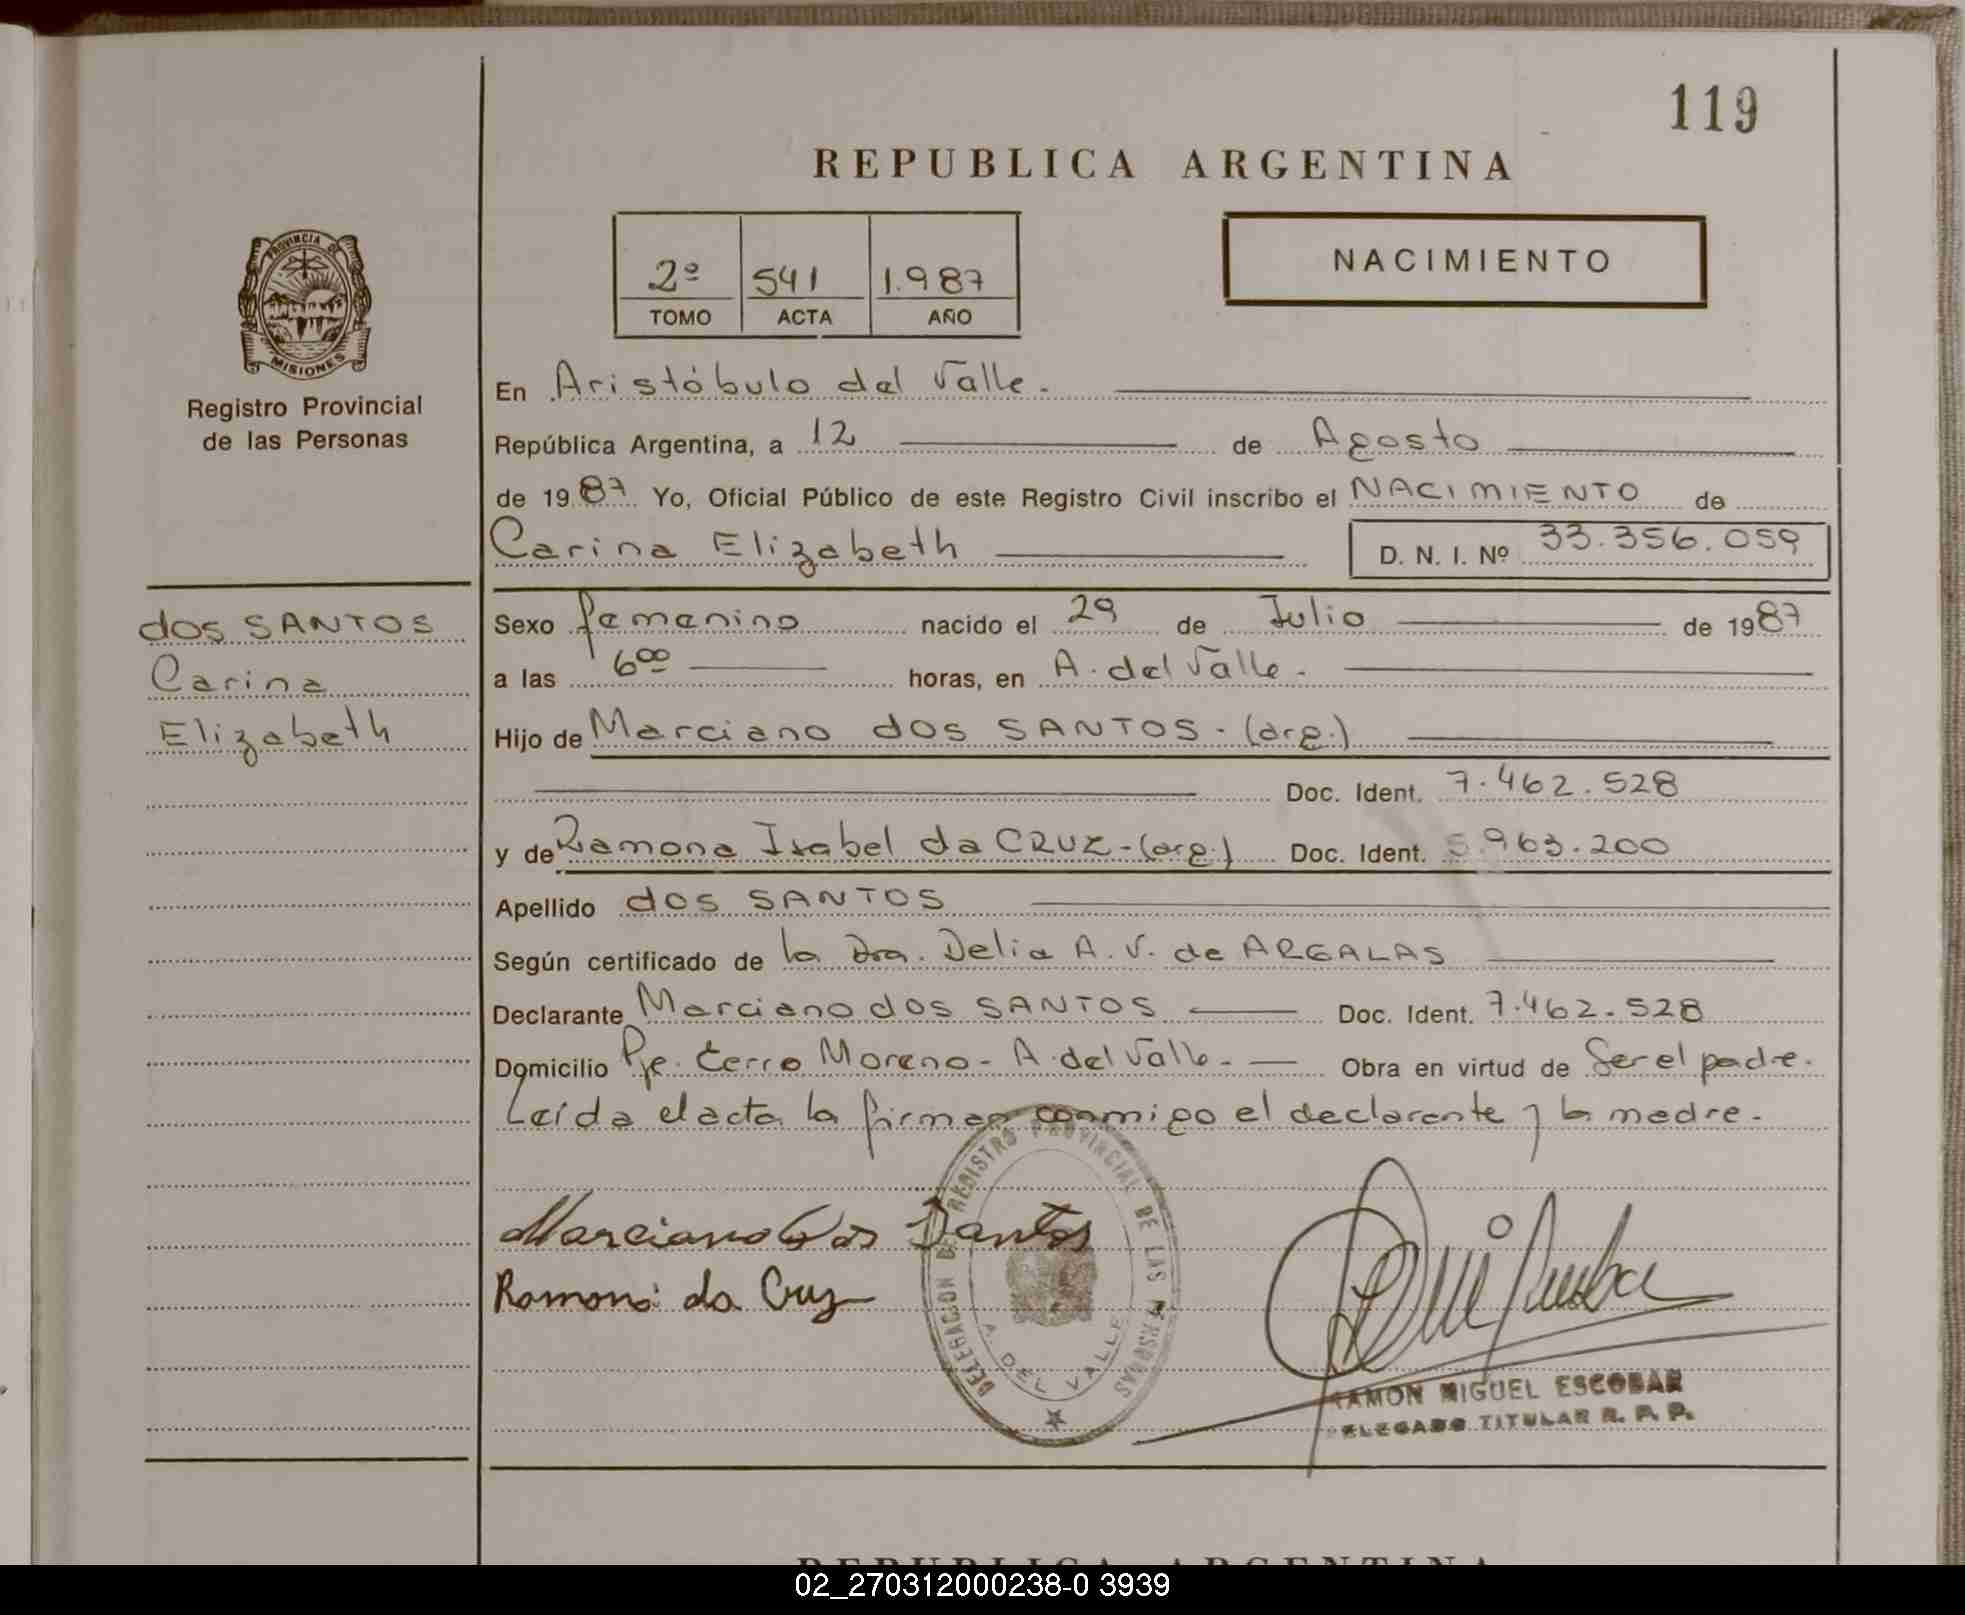 119
REPUBLICA ARGENTINA
2º 541 1.987
TOMO ACTA AÑO
NACIMIENTO
PROVINCIA DE
MISIONES
Registro Provincial
de las Personas
En Aristóbulo del Valle.
República Argentina, a 12 de Agosto
de 1987 Yo, Oficial Público de este Registro Civil inscribo el NACIMIENTO de
Carina Elizabeth D. N. I. Nº 33.356.059
dos SANTOS
Carina
Elizabeth
Sexo femenino nacido el 29 de Julio de 1987
a las 6⁰⁰ horas, en A. del Valle.
Hijo de Marciano dos SANTOS - (arg.)
Doc. Ident. 7.462.528
y de Ramona Isabel da CRUZ - (arg.) Doc. Ident. 5.963.200
Apellido dos SANTOS
Según certificado de la Dra. Delia A. V. de ARGALAS
Declarante Marciano dos SANTOS Doc. Ident. 7.462.528
Domicilio Pje. Cerro Moreno - A. del Valle. Obra en virtud de Ser el padre.
Leída el acta la firman conmigo el declarante y la madre.
Marciano Dos Santos
Ramona da Cruz
DELEGACION DE REGISTRO PROVINCIAL DE LAS PERSONAS
A. DEL VALLE
RAMON MIGUEL ESCOBAR
DELEGADO TITULAR R. P. P.
REPUBLICA ARGENTINA
02_270312000238-0 3939